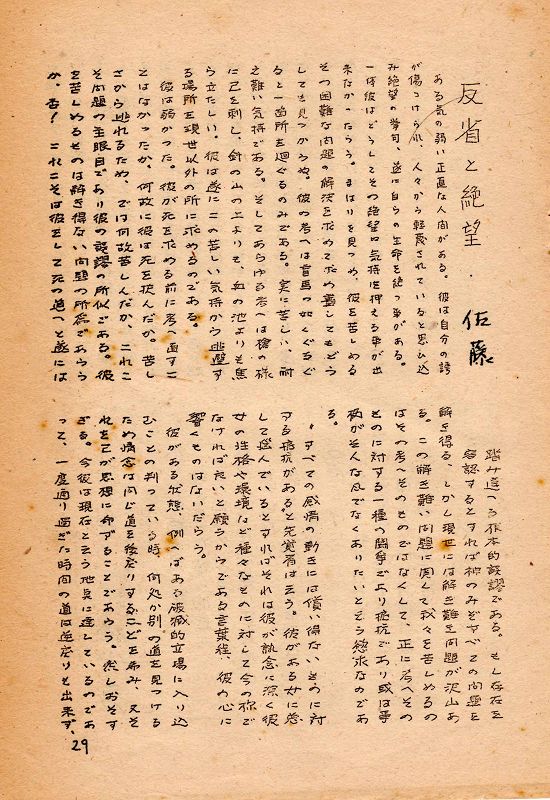 反省と絶望.
佐藤
ある気の弱い正直な人間がある。彼は自分の誇
が傷つけられ、人々から軽蔑されていると思ひ込
み絶望の挙句、遂に自らの生命を絶つ事がある。
一体彼はどうしてその絶望的気持を押える事が出
来なかったらう。まはりを見つめ、彼を苦しめる
その困難な問題の解決を求めて求め盡してもどう
しても見つからぬ。彼の考へは盲馬の如くぐるぐ
ると一箇所を廻ぐるのみである。実に苦しい、耐
え難い気持である。そしてあらゆる考へは槍の様
に己を刺し、針の山の上よりも、血の池よりも焦
ら立たしい。彼は遂にこの苦しい気持から逃避す
る場所を現世以外の所に求めるのである。
彼は弱かった。彼が死を求める前に考へ直すこ
とはなかったか。何故に彼は死を択んだか。苦し
さから逃れるため、では何故苦しんだか、これこ
そ問題の主眼目であり彼の誤謬の所似である。彼
を苦しめるものは解き得ない問題の所為であらう
か。否！これこそは彼をして死の道へと遂には
踏み迷へる根本的誤謬である。もし存在を
容認するとすれば神のみぞすべての問題を
解き得る、しかし現世には解き難き問題が沢山あ
る。この解き難い問題に関して我々を苦しめるの
はその考へそのものではなくして、正に考へその
ものに対する一種の闘争であり抵抗であり或は事
柄がそんな風でなくありたいとそう慾求なのであ
る。
すべての感情の動きには償い得ないものに対
する抵抗があると先覚者は云う。彼がある女に恋
して悩んでいるとすればそれは彼が執念に深く彼
女の性格や環境など種々なものに対して今の侭で
なければ良いと願うからである言葉程、彼の心に
響くものはないだらう。
彼がある状態、例へばある破滅的立場に入り込
むことの判っている時、何処か別の道を見つける
ため情念は同じ道を後戻りすることを拒み、又そ
れを己が思想に命ずることであらう。然しおそす
ぎる。今彼は現在と云う地点に達しているのであ
って、一度通り過ぎた時間の道は逆戻りも出来ず、
29